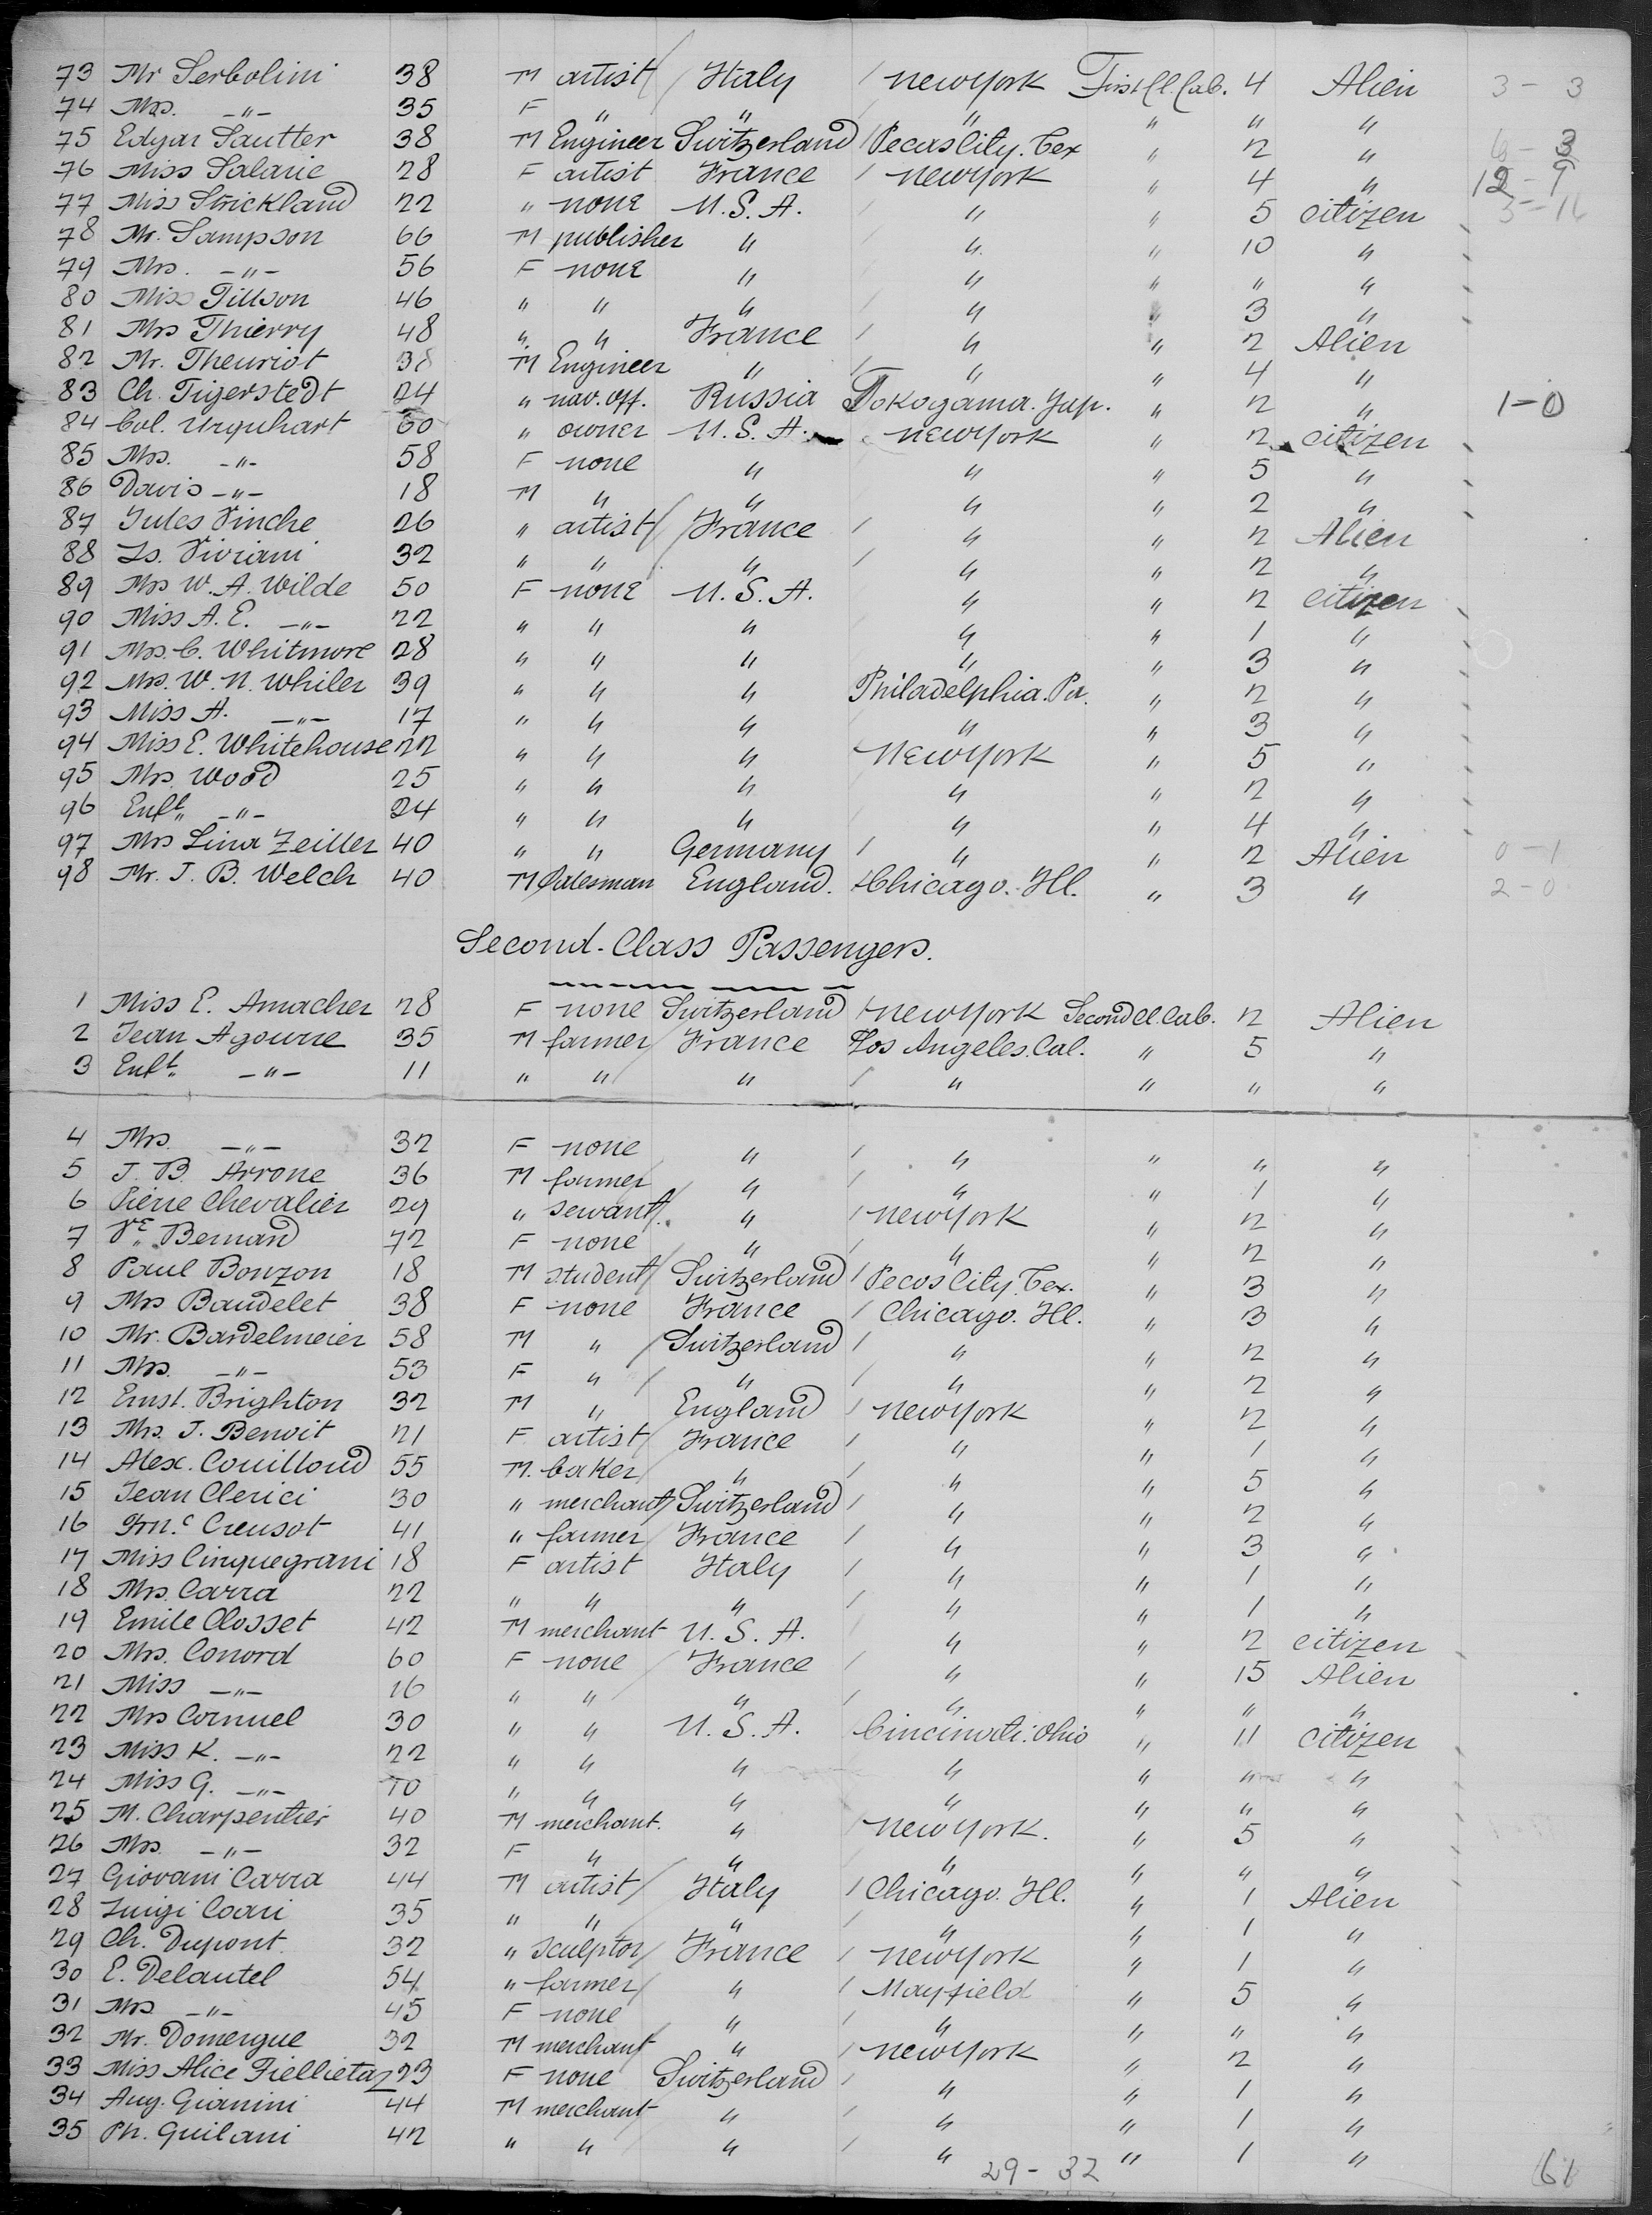 73 Mr Serbolini 38 M artist Italy New York First Cl. Cab. 4 Alien 3 - 3
74 Mrs. -"- 35 F " " " " " "
75 Edgar Sautter 38 M Engineer Switzerland Pecos City. Tex " 2 " 6 - 3
76 Miss Salarie 28 F artist France New York " 4 " 12 - 9
77 Miss Strickland 22 " none U.S.A. " " 5 citizen
78 Mr. Sampson 66 M publisher " " " 10 "
79 Mrs. -"- 56 F none " " " " "
80 Miss Tillson 46 " " " " " 3 "
81 Mrs Thierry 48 " " France " " 2 Alien
82 Mr. Theuriot 38 M Engineer " " " 4 "
83 Ch. Tigerstedt 24 " nav. off. Russia Yokogama. Jap. " 2 " 1-0
84 Col. Urquhart 60 " owner U.S.A. New York " 2 citizen
85 Mrs. -"- 58 F none " " " 5 "
86 Davis -"- 18 M " " " " 2 "
87 Jules Vinche 26 " artist France " " 2 Alien
88 Ls. Viviani 32 " " " " " 2 "
89 Mrs W. A. Wilde 50 F none U.S.A. " " 2 citizen
90 Miss A. E. -"- 22 " " " " " 1 "
91 Mrs. C. Whitmore 28 " " " " " 3 "
92 Mrs. W. N. Whiler 39 " " " Philadelphia. Pa. " 2 "
93 Miss A. -"- 17 " " " " " 3 "
94 Miss E. Whitehouse 22 " " " New York " 5 "
95 Mrs. Wood 25 " " " " " 2 "
96 Enft. -"- 24 " " " " " 4 "
97 Mrs Lina Zeiller 40 " " Germany " " 2 Alien 0-1
98 Mr. J. B. Welch 40 M Salesman England. Chicago. Ill. " 3 " 2-0
Second-Class Passengers.
1 Miss E. Amacher 28 F none Switzerland New York Second Cl. Cab. 2 Alien
2 Jean Agourre 35 M farmer France Los Angeles. Cal. " 5 "
3 Enft. -"- 11 " " " " " " "
4 Mrs. -"- 32 F none " " " " "
5 J. B. Arrone 36 M farmer " " " 1 "
6 Pierre Chevalier 29 " servant " New York " 2 "
7 Ve. Bernard 72 F none " " " 2 "
8 Paul Bonzon 18 M student Switzerland Pecos City. Tex. " 3 "
9 Mrs Baudelet 38 F none France Chicago. Ill. " 3 "
10 Mr. Bardelmeier 58 M " Switzerland " " 2 "
11 Mrs. -"- 53 F " " " " 2 "
12 Ernst. Brighton 32 M " England New York " 2 "
13 Mrs. J. Benoit 21 F artist France " " 1 "
14 Alex. Couilloud 55 M. baker " " " 5 "
15 Jean Clerici 30 " merchant Switzerland " " 2 "
16 Frnc. Creusot 41 " farmer France " " 3 "
17 Miss Cinquegrani 18 F artist Italy " " 1 "
18 Mrs. Carra 22 " " " " " 1 "
19 Emile Closset 42 M merchant U.S.A. " " 2 citizen
20 Mrs. Conord 60 F none France " " 15 Alien
21 Miss -"- 16 " " " " " " "
22 Mrs Cornuel 30 " " U.S.A. Cincinati. Ohio " 11 citizen
23 Miss K. -"- 22 " " " " " " "
24 Miss G. -"- 10 " " " " " " "
25 M. Charpentier 40 M merchant. " New York. " 5 "
26 Mrs. -"- 32 F " " " " " "
27 Giovani Carra 44 M artist Italy Chicago. Ill. " 1 Alien
28 Luigi Coari 35 " " " " " 1 "
29 Ch. Dupont. 32 " sculptor France New York " 1 "
30 E. Delautel 54 " farmer " Mayfield " 5 "
31 Mrs -"- 45 F none " " " " "
32 Mr. Domergue 32 M merchant " New York " 2 "
33 Miss Alice Fiellietaz 23 F none Switzerland " " 1 "
34 Aug. Gianini 44 M merchant " " " 1 "
35 Ph. Guilani 42 " " " " " 1 "
29 - 32
61